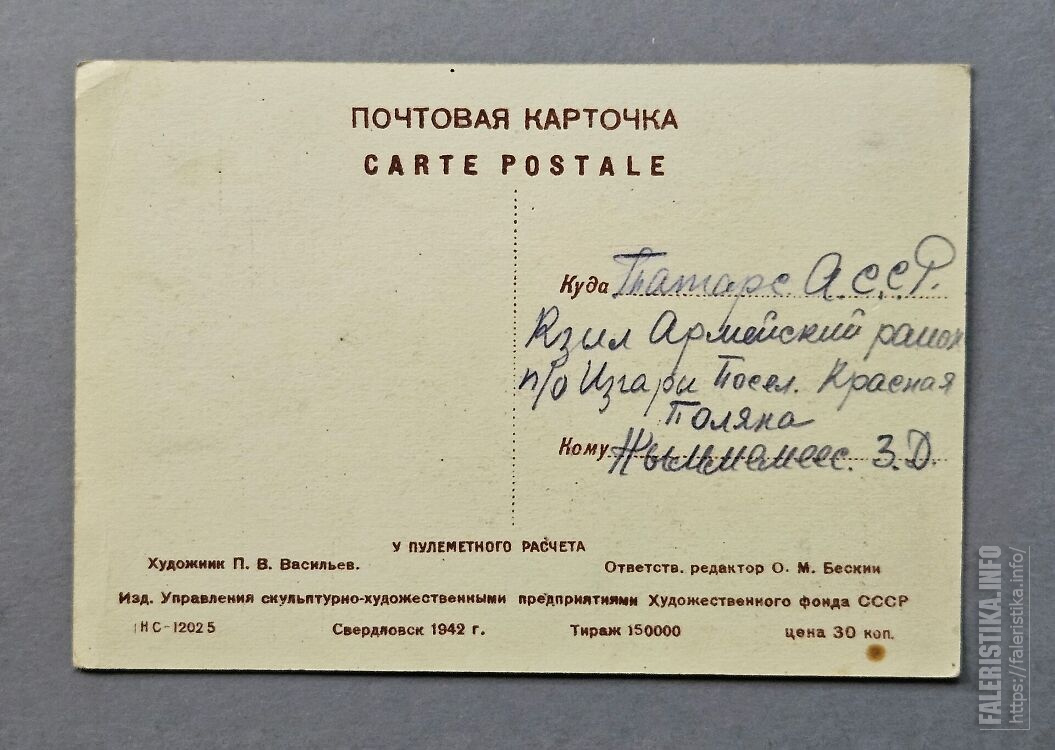 ПОЧТОВАЯ КАРТОЧКА
CARTE POSTALE
Куда Татарс. А.С.С.Р.
Кзил Армейский район
п/о Изгари Посел. Красная
Поляна
Кому З.Д.
У ПУЛЕМЕТНОГО РАСЧЕТА
Художник П. В. Васильев.
Ответств. редактор О. М. Бескин
Изд. Управления скульптурно-художественными предприятиями Художественного фонда СССР
НС-12025 Свердловск 1942 г. Тираж 150000 цена 30 коп.
FALERISTIKA.INFO
https://faleristika.info/